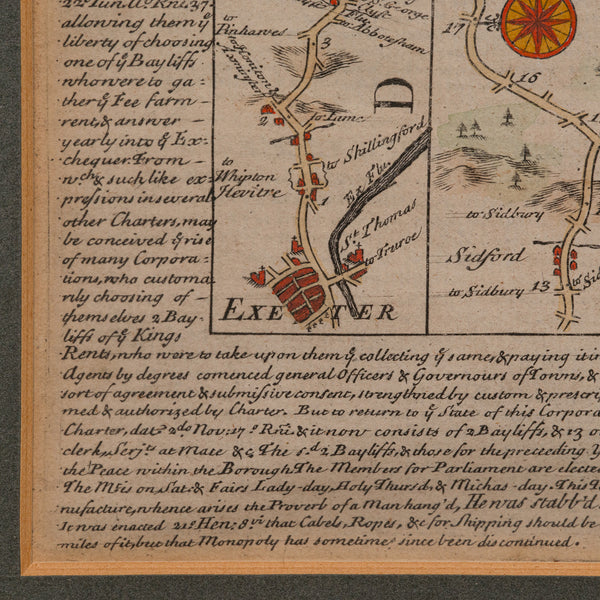 22d Iun. Ao. Rni. 37.
allowing them ẙ
liberty of choosing
one of ẙ Bayliffs
who were to ga-
ther ẙ Fee farm
rent, & answer
yearly into ẙ Ex-
chequer. From
wch. & such like ex-
pressions in several
other Charters, may
be conceived ẙ rise
of many Corpora-
tions, who customa-
rily choosing of
themselves 2 Bay-
liffs of ẙ Kings
Rents, who were to take upon them ẙ collecting ẙ same, & paying it in
Agents by degrees comenced general Officers & Governours of Towns, &
sort of agreement & submissive consent, strengthned by custom & prescri
med & authorized by Charter. But to return to ẙ State of this Corpora
Charter, datd. 2do Nov: 17o. Rni. & it now consists of 2 Bayliffs, & 13 o
clerk, Serjts. at Mate & c. The sd. 2 Bayliffs, & those for the preceeding Y
the Peace within the Borough The Members for Parliament are elected
The Mts is on, Sat. & Fairs Lady-day, Holy Thursd, & Michas-day. This T
nufacture, whence arises the Proverb of a Man hang'd, He was stabb'd
It was enacted 21s. Hen: 8vi that Cabels, Ropes, & c for Shipping should be
miles of it, but that Monopoly has sometime since been discontinued.
St. George
Clyst
to Abbotesham
to
Pinhawes
3
to Honiton &
Axmister
2
to Lime
to Shillingford
to
Whipton
Hevitre
1
Ex Flu.
St Thomas
to Truroe
EXETER
D
17
16
to Sidbury
Sidford
to Sidbury
13
to Sid